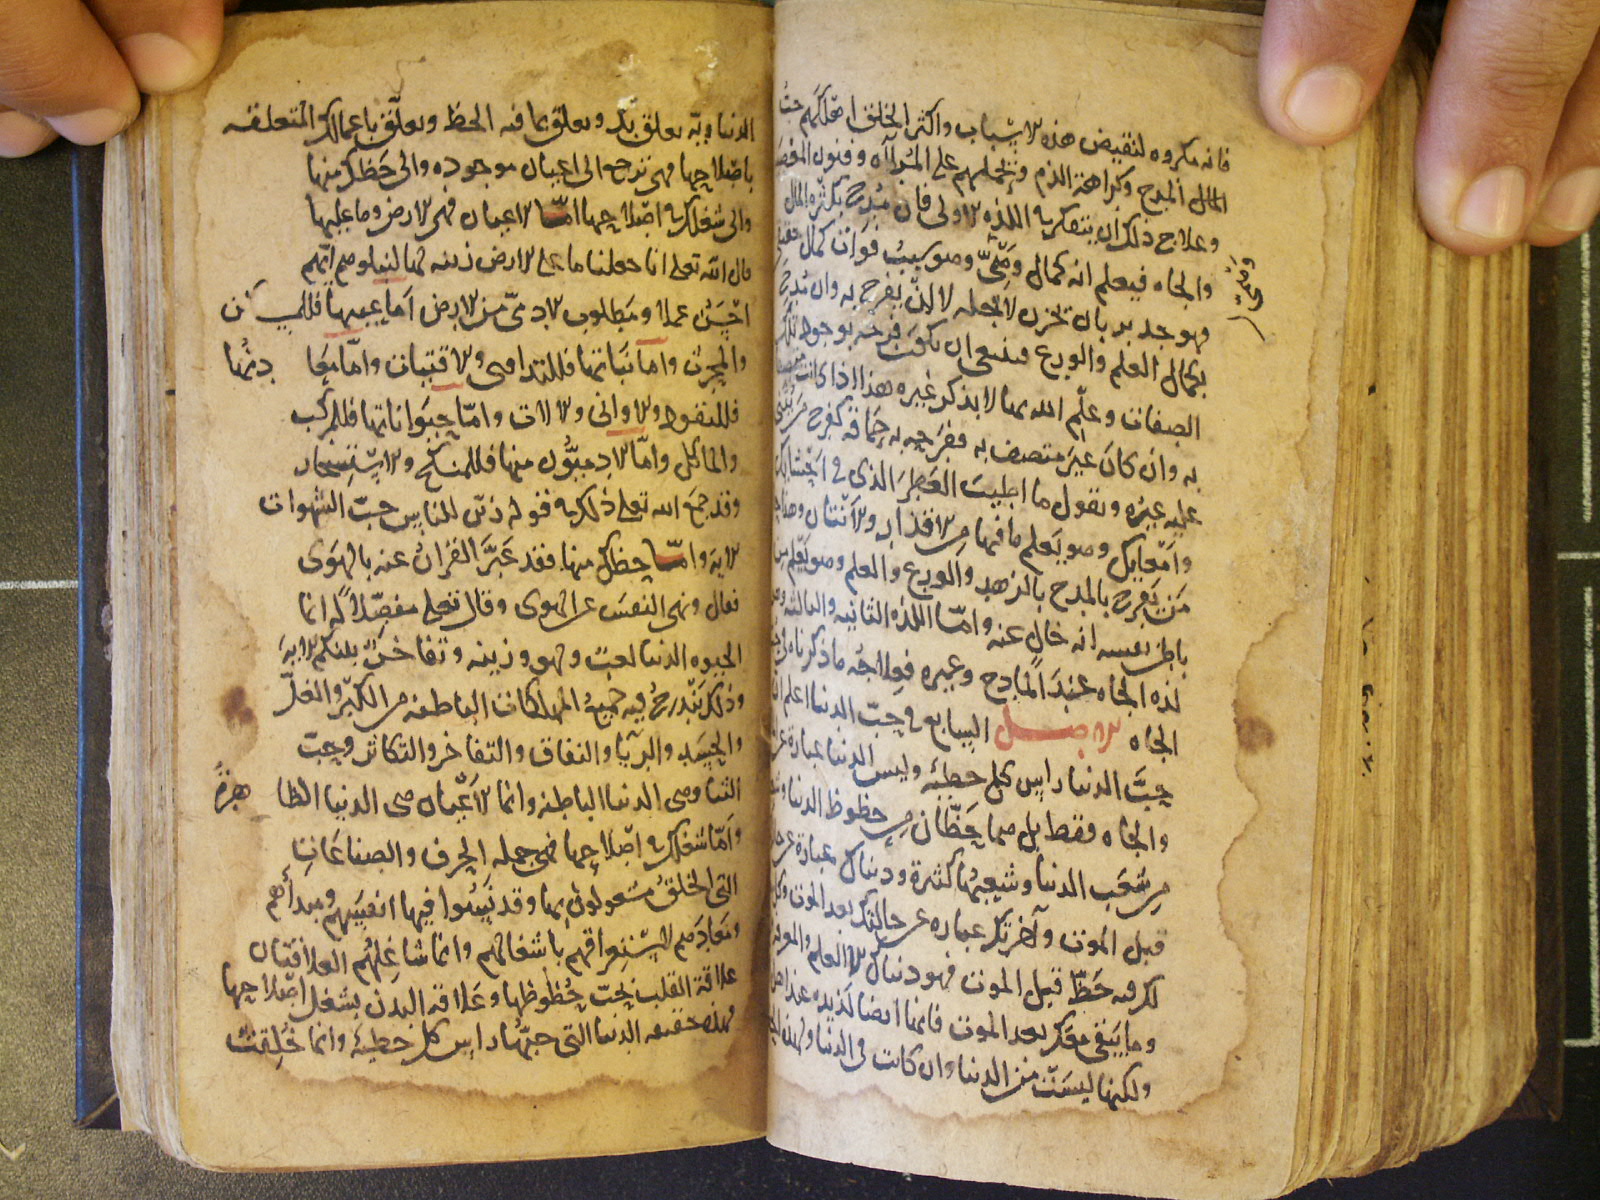 فانه مكروه لنقيض هذه الاسباب واكثر الخلق اهلكهم حب
المال المدح وكراهة الذم وتحملهم على المراآة وفنون
وعلاج ذلك ان يتفكر في اللذة الاولى فان مدح بكثرة المال
والجاه فيعلم انه كمال وهمي وهو سبب فوات كمال
فهو جدير بان يحزن لاجله لا لان يفرح به وان مدح
بكمال العلم والورع فينبغي ان يكون فرحه بوجود تلك
الصفات وعلم الله بها لا بذكر غيره هذا اذا كان
به وان كان غير متصف به ففرحه به حماقة كفرح من يثنى
عليه غيره ويقول ما اطيب العطر الذي في احشائك
وامعايك وهو يعلم ما فيها من الاقذار والانتان وهذا
من يفرح بالمدح بالزهد والورع والعلم وهو يعلم من
باطن نفسه انه خال عنه واما اللذة الثانية والثالثة
لذة الجاه عند المادح وغيره فعلاجه ما ذكرناه في
الجاه الاصل السابع في حب الدنيا اعلم ان
حب الدنيا راس كل خطيئة وليس الدنيا عبارة عن
والجاه فقط بل هما حظان من حظوظ الدنيا
من شعب الدنيا وشعبها كثيرة ودنياك عبارة عن
قبل الموت وآخرتك عبارة عن حالتك بعد الموت وكل
لك فيه حظ قبل الموت فهو دنياك الا العلم
وما يبقى معك بعد الموت فانها ايضا لذيذه عند
ولكنها ليست من الدنيا وان كانت في الدنيا ولهذه
الدنيا وبه تعلق بك وتعلق بما فيه الحظ وتعلق باعمالك المتعلقه
باصلاحها فهي ترجع الى اعيان موجوده والى حظك منها
والى شغلك في اصلاحها اما الاعيان فهي الارض وما عليها
قال الله تعلى انا جعلنا ما على الارض زينه لها لنبلوهم ايهم
احسن عملا ومطلوب الادمي من الارض اما عينها فللمسكن
والحرث واما نباتها فللتداوي والاقتيات واما معادنها
فللنقود والاواني والالات واما حيواناتها فللمركب
والماكل واما الادميون منها فللمنكح والاستسخار
وقد جمع الله تعلى ذلك في قوله زين للناس حب الشهوات
الايه واما حظك منها فقد عبر القران عنه بالهوى
فقال ونهى النفس عن الهوى وقال تعلى مفصلا له انما
الحيوه الدنيا لعب ولهو وزينه وتفاخر بينكم الايه
وذلك يندرج فيه جميع المهلكات الباطنه من الكبر والغل
والحسد والريا والنفاق والتفاخر والتكاثر وحب
الثنا وهي الدنيا الباطنه وانما الاعيان هي الدنيا الظاهرة
واما شغلك في اصلاحها فهي جمله الحرف والصناعات
التي الخلق مشغولون بها وقد نسوا فيها انفسهم ومبدأهم
ومعادهم لاستغراقهم باشغالهم وانما شاغلهم العلاقتان
علاقة القلب بحب حظوظها وعلاقه البدن بشغل اصلاحها
فهذه حقيقه الدنيا التي حبها راس كل خطيئة وانما خلقت